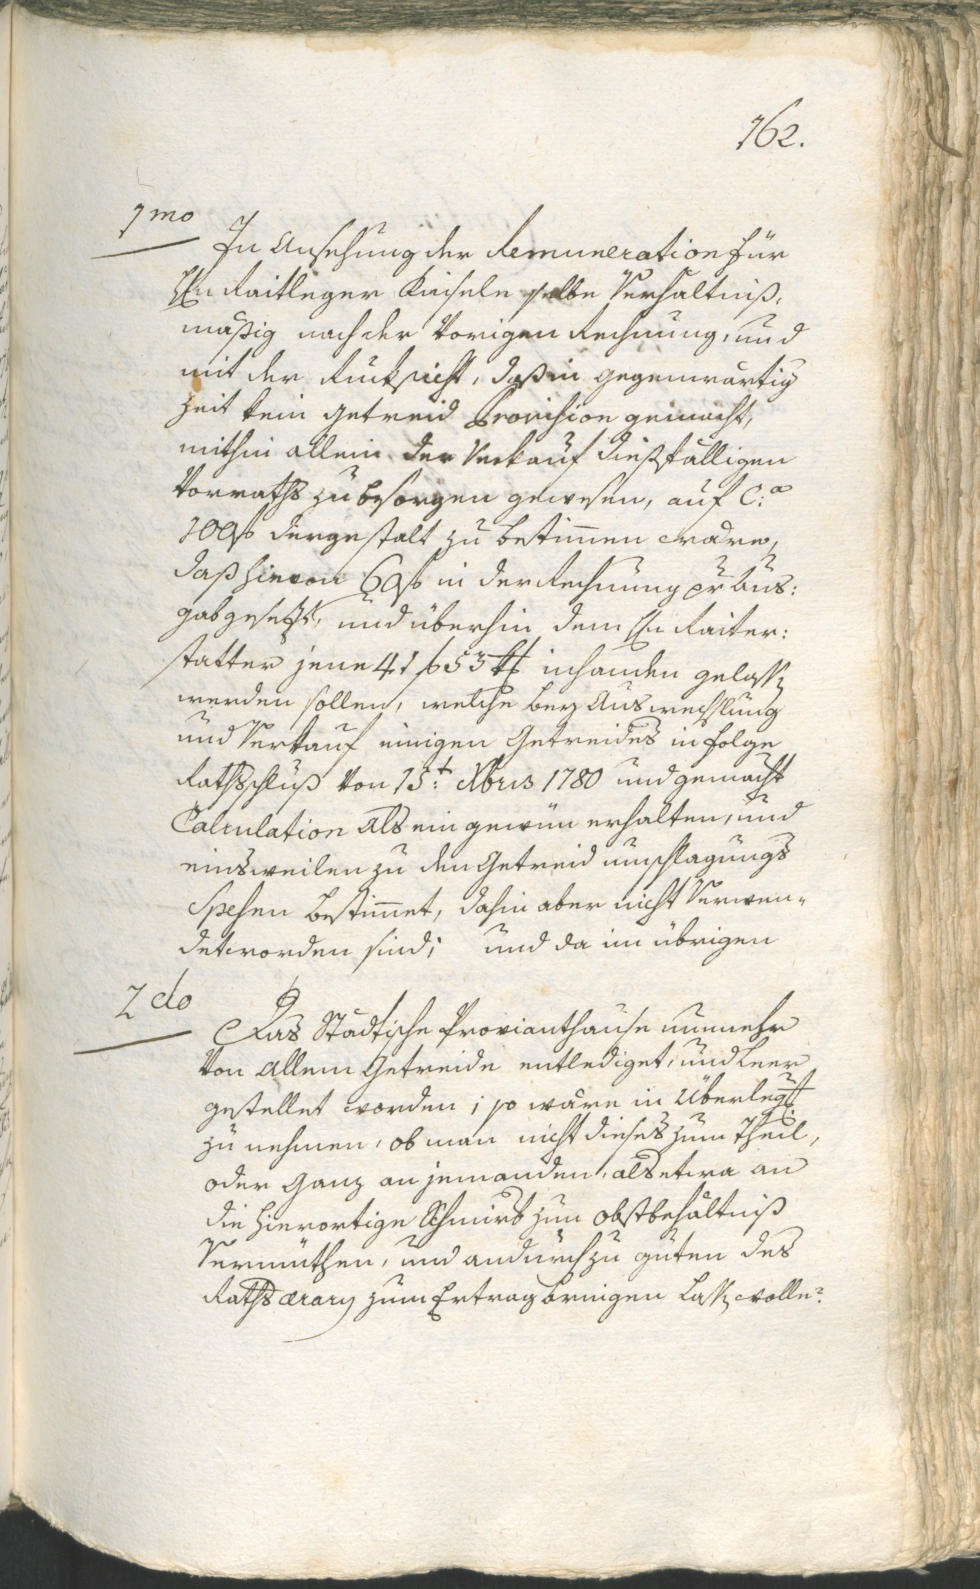 162.
1mo
In Ansehung der Remuneration für
Hrn Raitleger Kieseln selbe Verhältniß„
mäßig nach der Vorigen Rechnung, und
mit der Rucksicht, daß in gegenwärtig
Zeit kein Getreid Provision gemacht,
mithin allein der Verkauf dießfälligen
Vorraths zu besorgen gewesen, auf C:a
100f dergestalt zu bestimen wäre,
daß hievon 60f in der Rechnung pr Aus:
gab gesetzt, und überhin dem Hrn Raiter:
statter jene 41 f 53 inhanden gelassen
werden sollen, welche bey Auswechslung
und Verkauf einigen Getreides in folge
Rathsschluß Von 15t: Xbris 1780 und gemacht
Calculation als ein gewinn erhalten, und
einsweilen zu den Getreid umschlagungs
Spesen bestimmet, dahin aber nicht Verwen„
det worden sind; und da im übrigen
2do
Das Städtische Provianthause nunmehr
Von allem Getreide entlediget, und Leer
gestellet worden; so wäre in Überlegg
zu nehmen, ob man nicht dieses zum Theil,
oder Ganz an jemanden, als etwa an
die hierortige zum Obstbehältniß
Vermiethen, und andurch zu guten des
Raths ærary zum Ertrag bringen Lassen wolle?